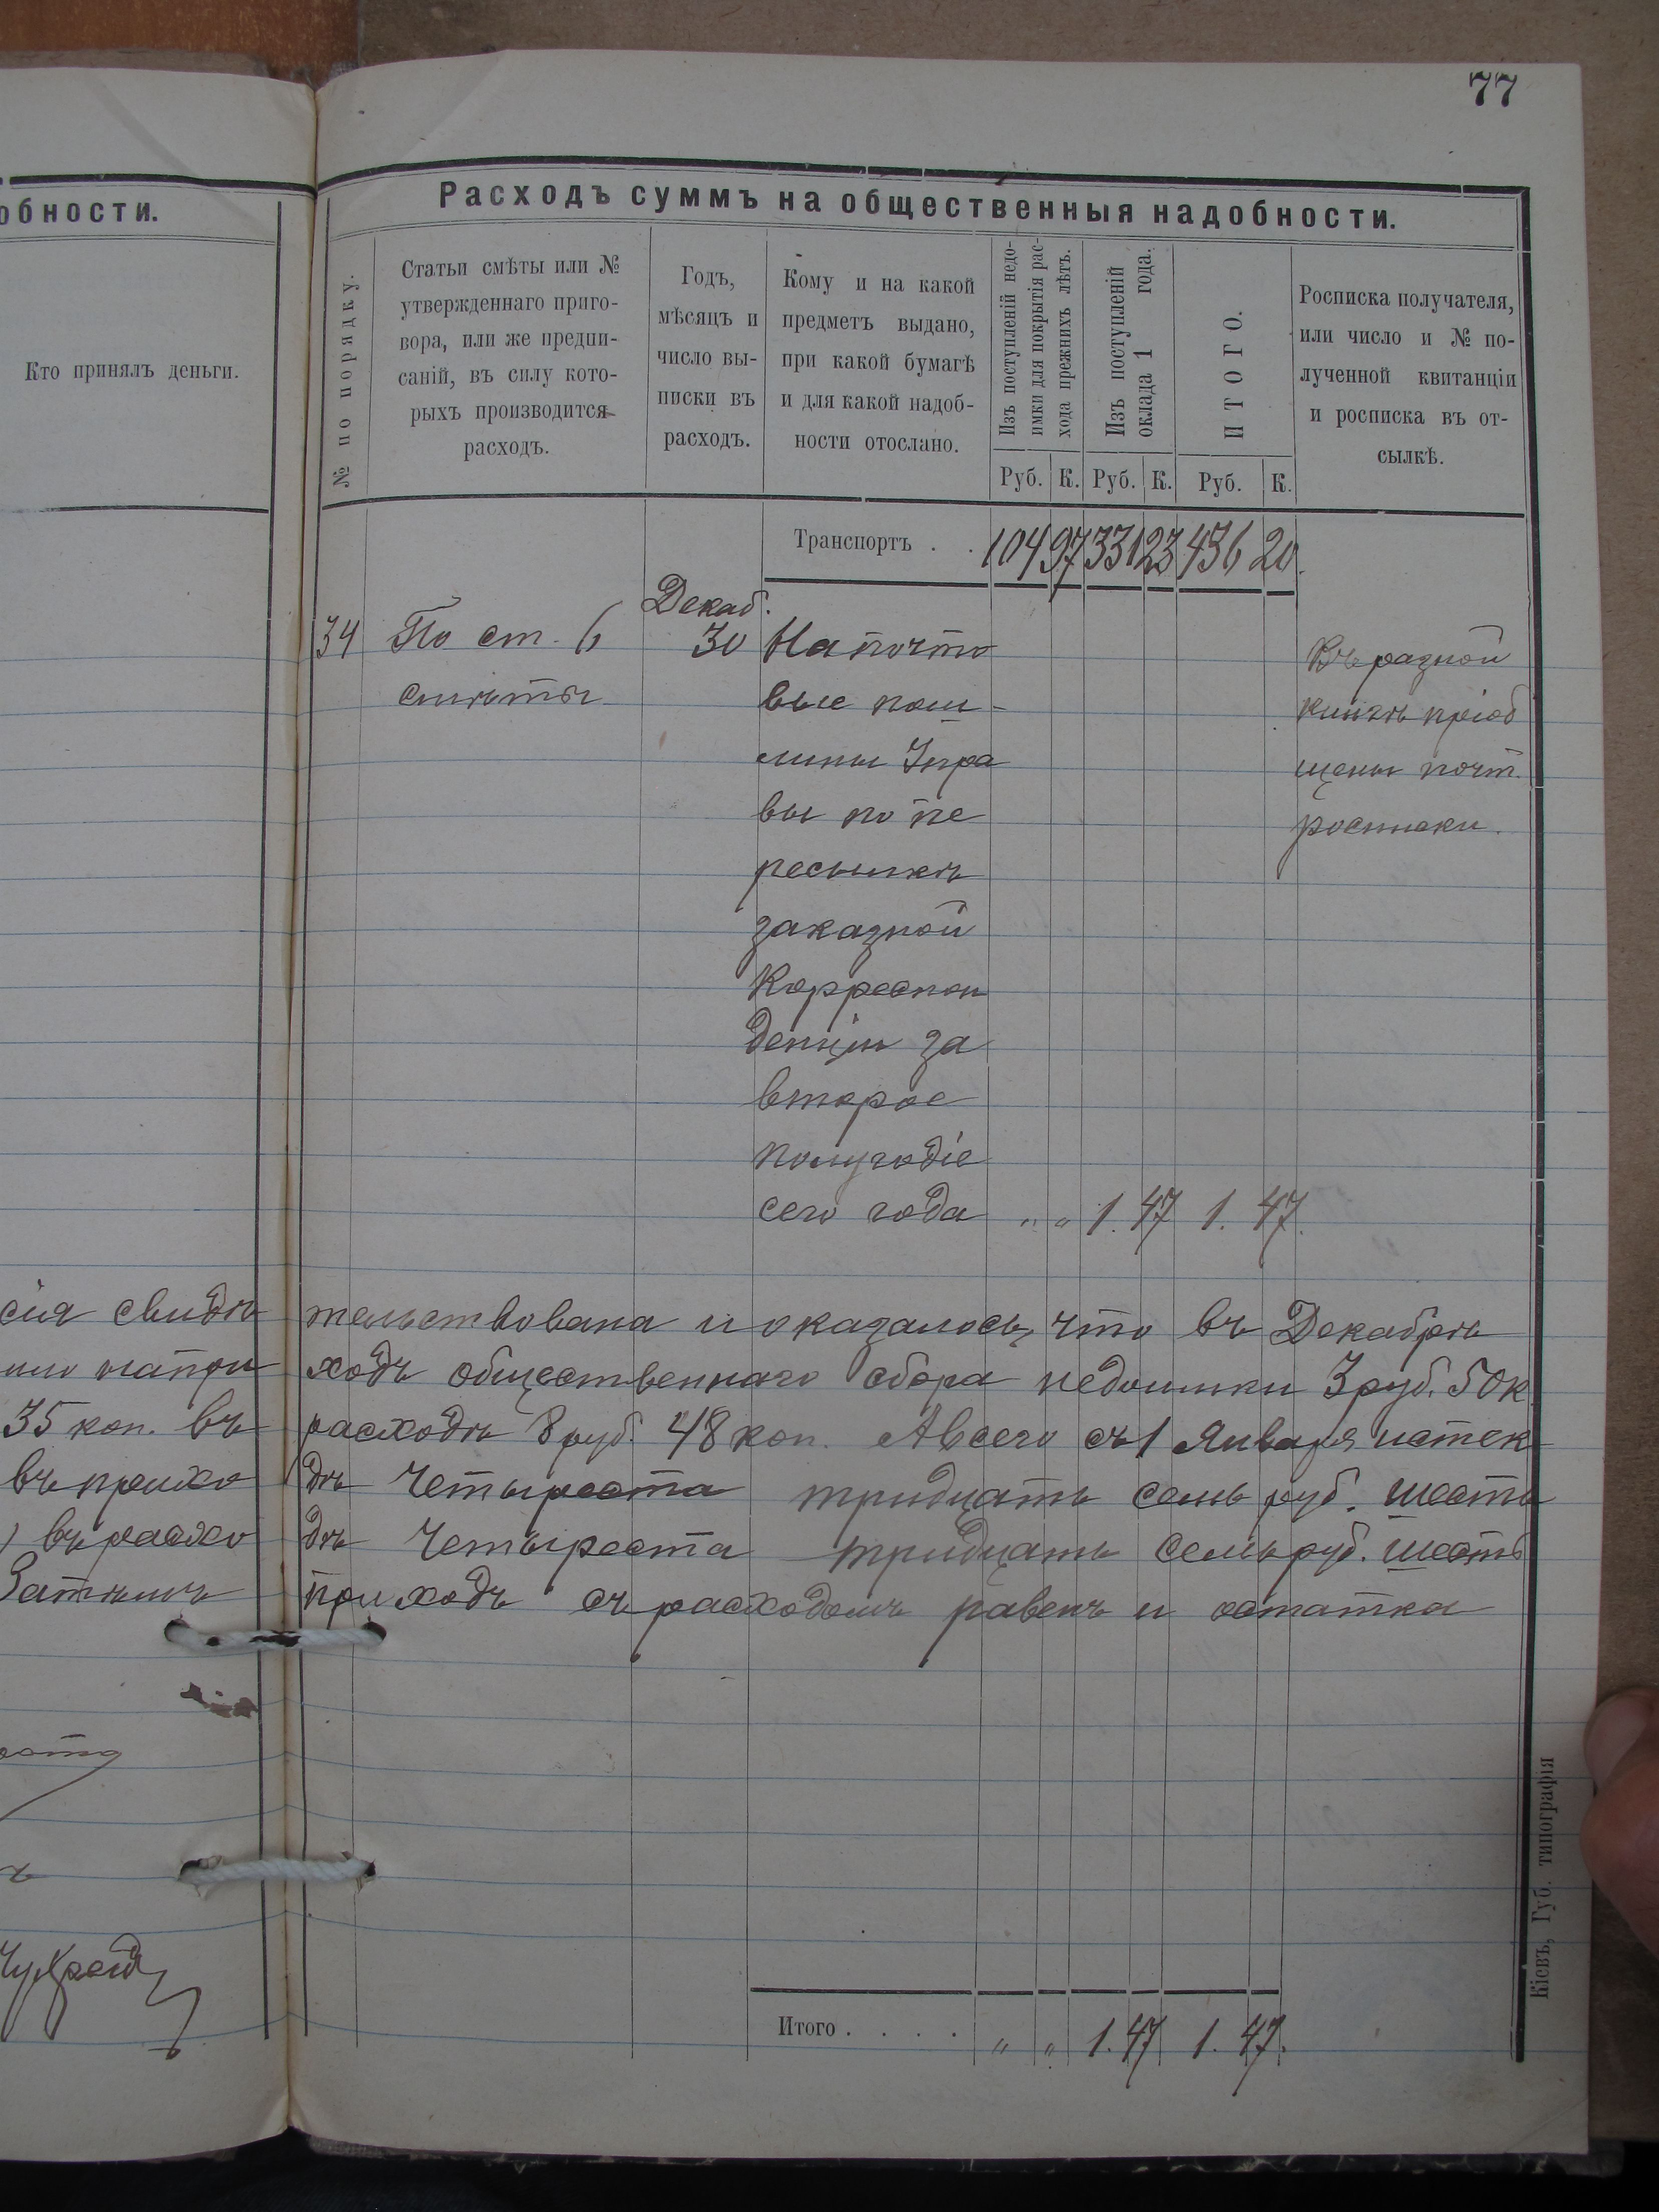 77
обности.
Кто принялъ деньги.
Расходъ суммъ на общественныя надобности.
№ по порядку.
Статьи смѣты или №
утвержденнаго приго-
вора, или же предпи-
саній, въ силу кото-
рыхъ производится
расходъ.
Годъ,
мѣсяцъ и
число вы-
писки въ
расходъ.
Кому и на какой
предметъ выдано,
при какой бумагѣ
и для какой надоб-
ности отослано.
Изъ поступленій недо-
имки для покрытія рас-
хода прежнихъ лѣтъ.
Изъ поступленій
оклада 1 года.
ИТОГО.
Росписка получателя,
или число и № по-
лученной квитанціи
и росписка въ от-
сылкѣ.
Руб. К. Руб. К. Руб. К.
Транспортъ . . 104 97 331 23 436 20
Декаб.
34 По ст. 6 30 На почто
смѣты вые пош-
лины Упра
вы по пе
ресылкѣ
заказной
Корреспон
денціи за
второе
полугодіе
сего года „ „ 1. 47 1. 47.
Въ разной
книгѣ пріоб
щены почт.
росписки.
сія свидѣ тельствована и оказалось, что въ Декабрѣ
ходъ общественнаго сбора недоимки 3 руб. 50 к
35 коп. въ расходѣ 8 руб. 48 коп. А всего съ 1 Января истек
въ прихо дѣ Четыреста тридцать семь руб. шесть
въ расхо дѣ Четыреста тридцать семь руб. шесть
Затѣмъ приходъ съ расходомъ равенъ и остатка
Итого . . . . „ „ 1. 47 1. 47.
Кіевъ, Губ. типографія